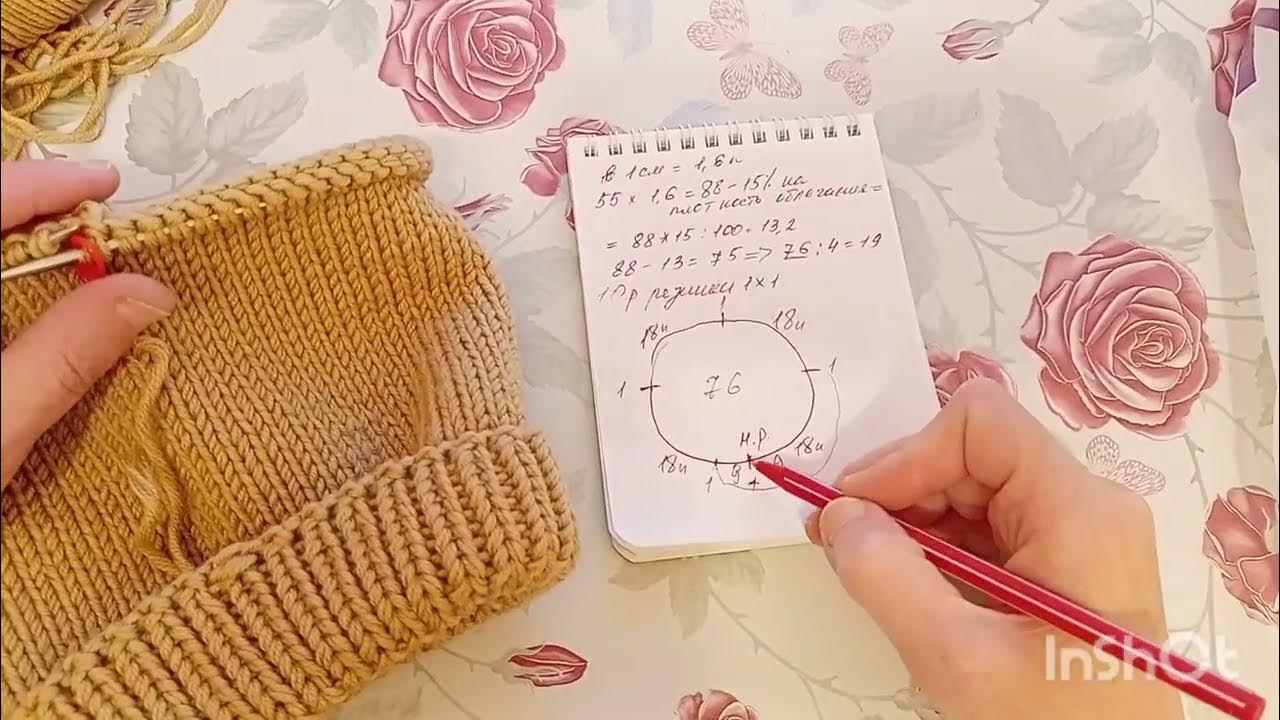 в 1 см = 1,6 п
55 × 1,6 = 88 - 15% на
плотность облегания =
= 88 × 15 : 100 = 13,2
88 - 13 = 75 => 76 : 4 = 19
10 р резинки 1×1
1
18п 18п
1 76 1
н.р.
18п 9 9 18п
1 +
InShOt